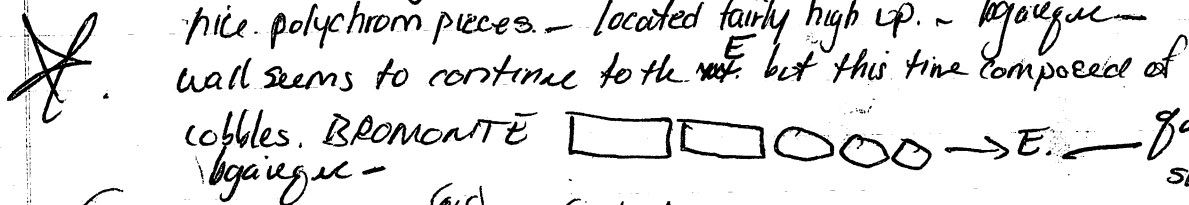 nice. polychrom pieces. — located fairly high up. ~ bgaregue —
wall seems to continue to the E but this time composed of
cobbles. BROMONTE → E. —
bgaiegue —